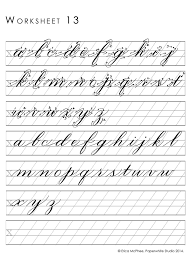 WORKSHEET 13
a b c d e f g h i j
k l m n o p q r s t
u v w x y z
a b c d e f g h i j k l
m n o p q r s t u v w
x y z
© Erica McPhee, Paperwhite Studio 2014